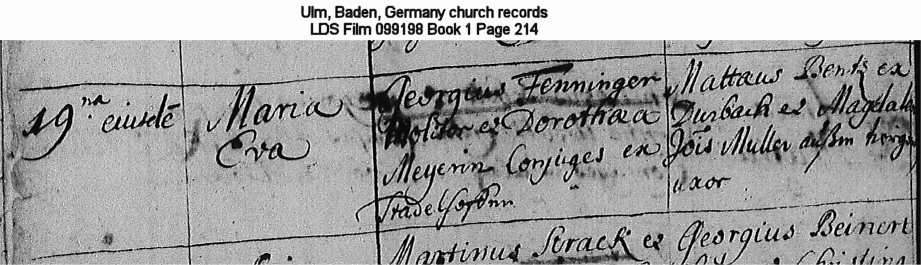 Ulm, Baden, Germany church records
LDS Film 099198 Book 1 Page 214
19.na eiusdē
Maria
Eva
Georgius Fenninger
Molitor et Dorothæa
Meyerin Conjuges ex
Stadelhofen
Mattæus Bentz ex
Durbach et Magdal
Jois Muller außm
uxor
Martinus Strack et
Georgius Beinert
Christina